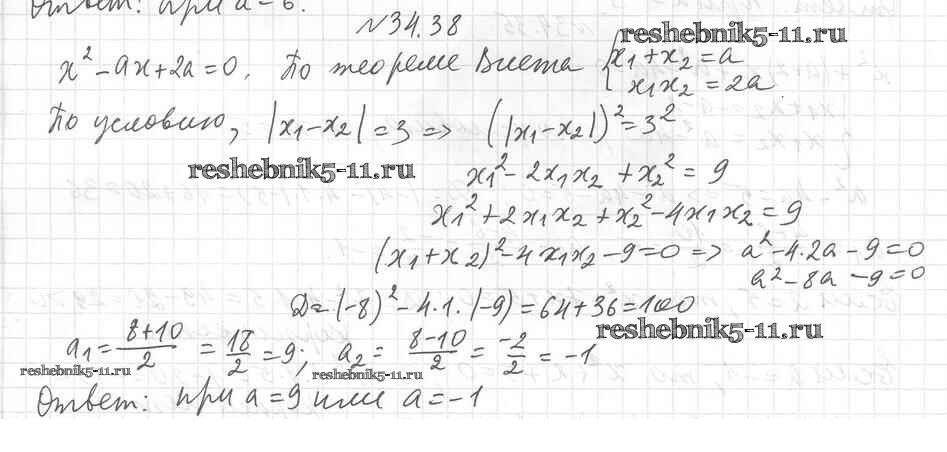 Ответ: при a = 6.
№34.38
reshebnik5-11.ru
x² - ax + 2a = 0. По теореме Виета { x₁ + x₂ = a
x₁x₂ = 2a
По условию, |x₁ - x₂| = 3 => (|x₁ - x₂|)² = 3²
reshebnik5-11.ru
x₁² - 2x₁x₂ + x₂² = 9
x₁² + 2x₁x₂ + x₂² - 4x₁x₂ = 9
(x₁ + x₂)² - 4x₁x₂ - 9 = 0 => a² - 4·2a - 9 = 0
a² - 8a - 9 = 0
D = (-8)² - 4·1·(-9) = 64 + 36 = 100
reshebnik5-11.ru
a₁ = (8+10)/2 = 18/2 = 9; a₂ = (8-10)/2 = -2/2 = -1
reshebnik5-11.ru reshebnik5-11.ru
Ответ: при a = 9 или a = -1